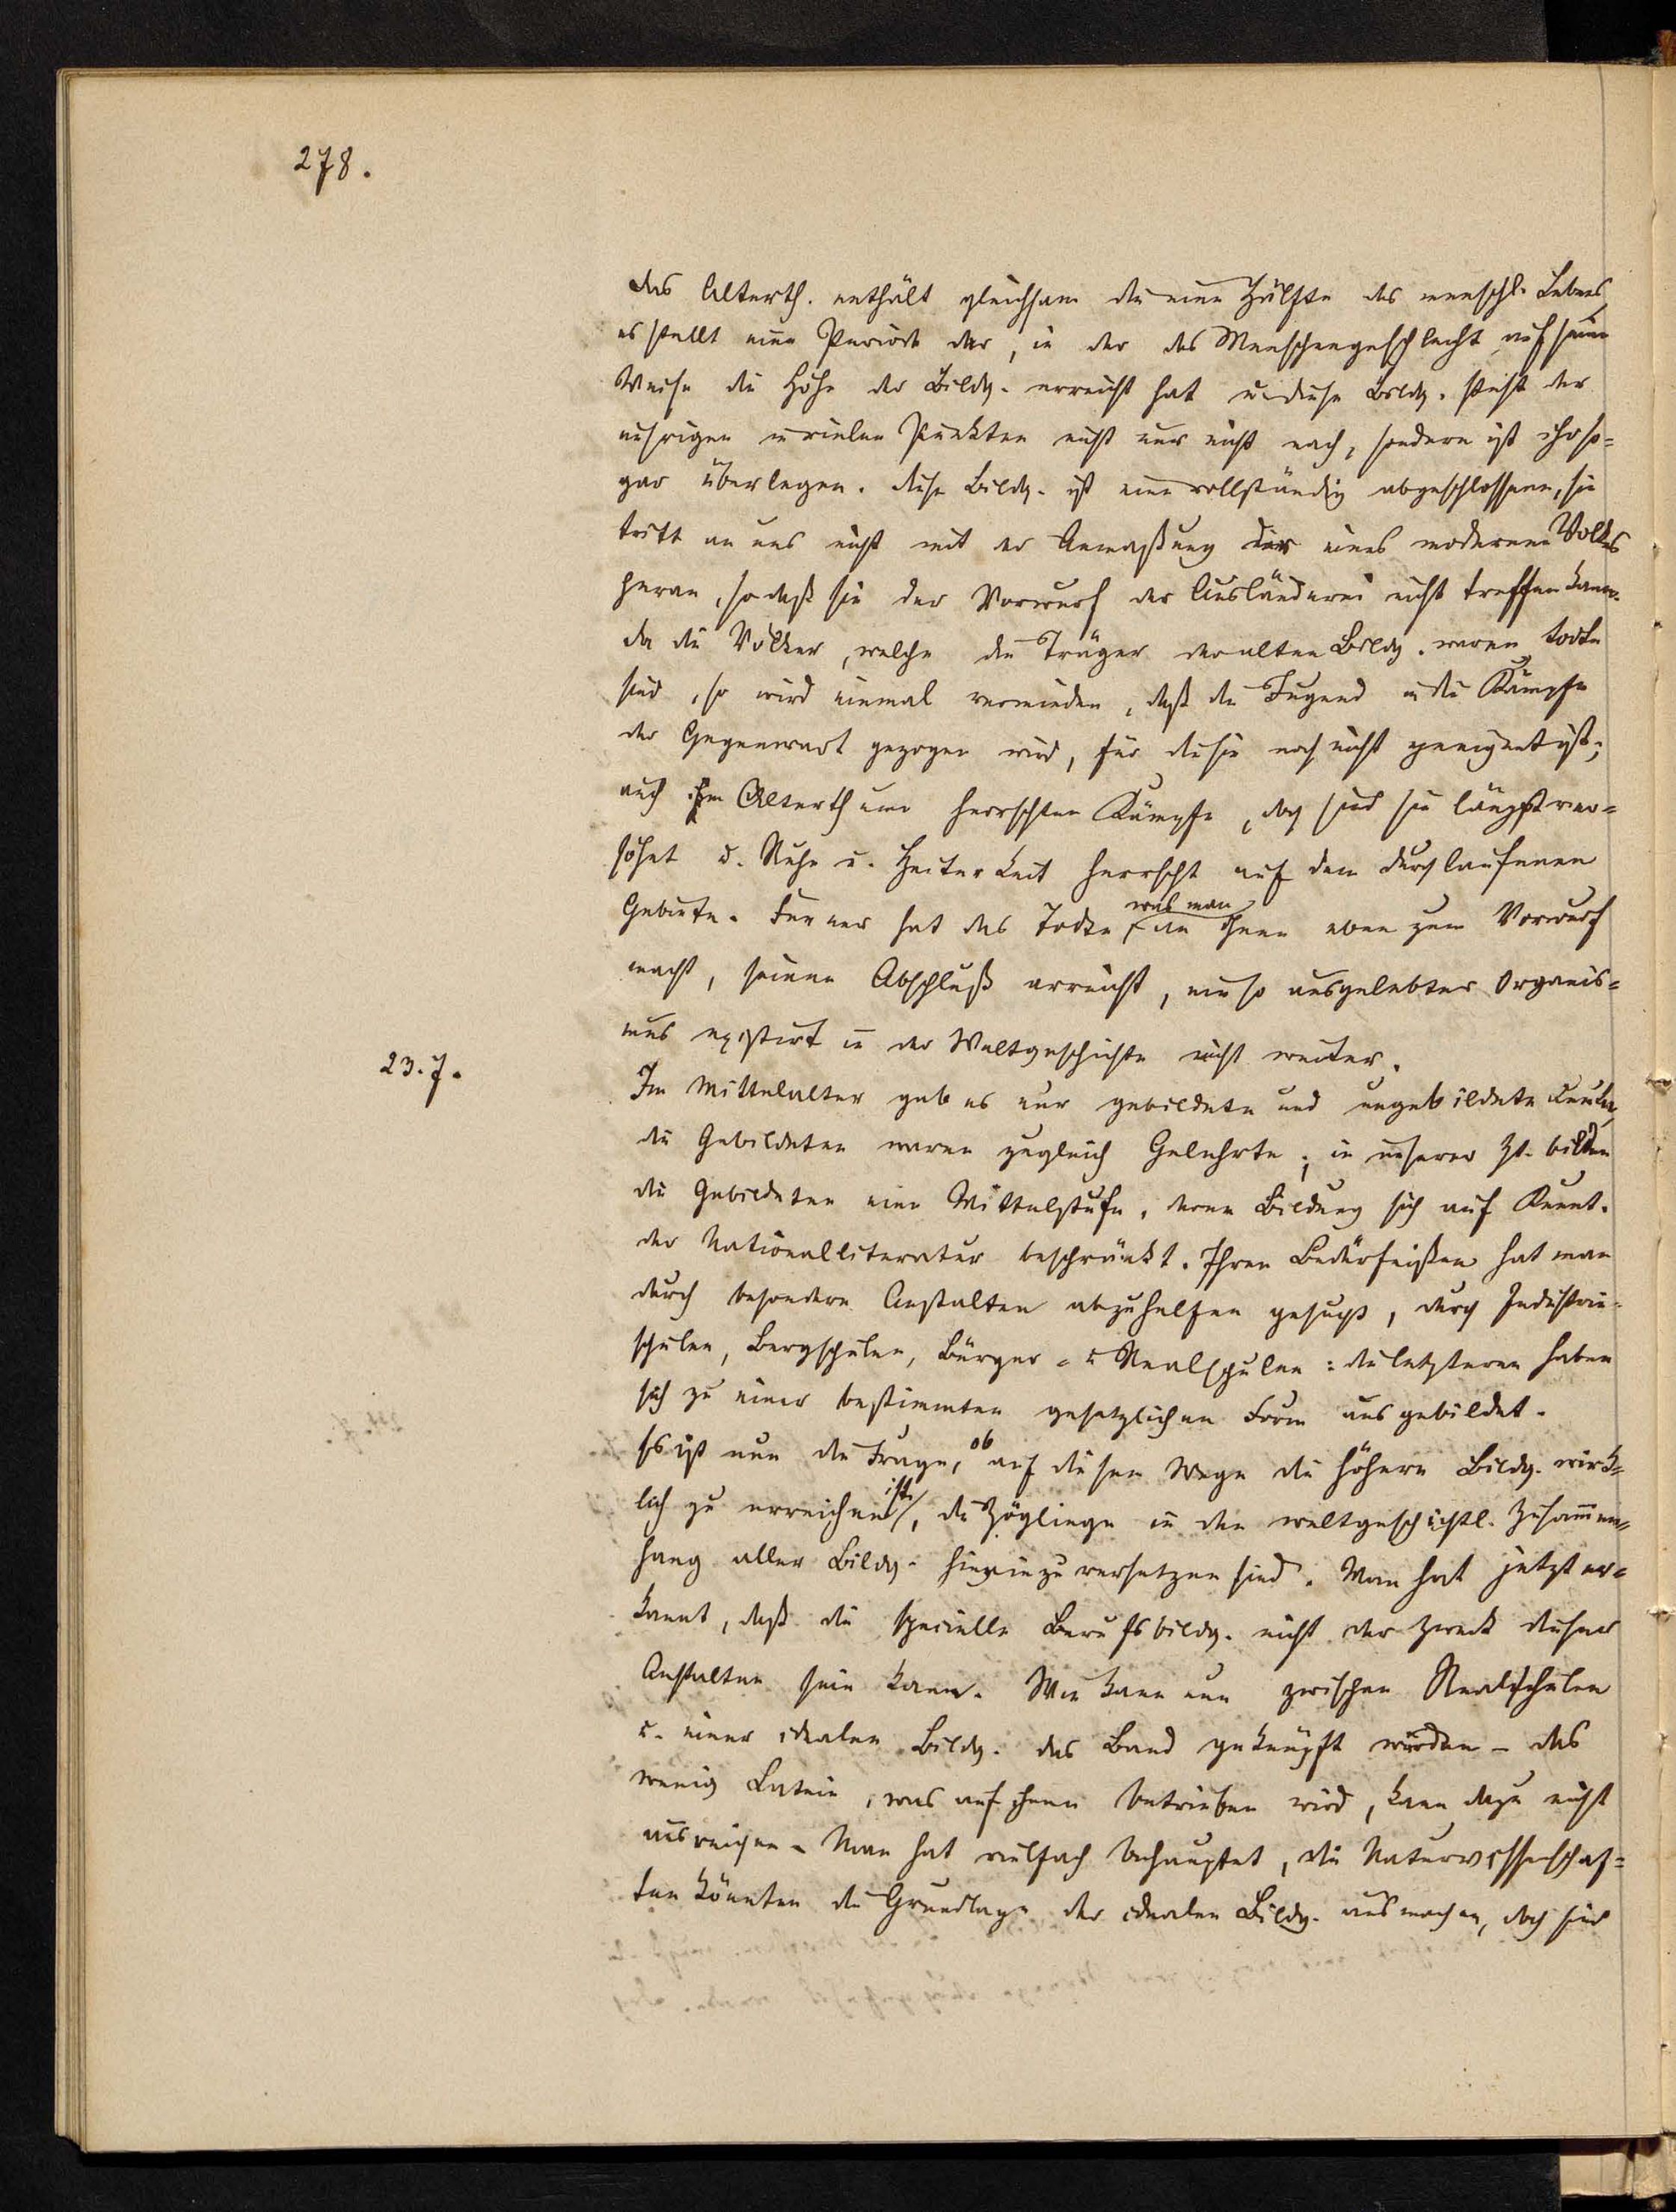 278.
das Alterth. enthält gleichsam die eine Hälfte des menschl. Lebens,
es stellt eine Periode dar, in der das Menschengeschlecht auf seine
Weise die Höhe der Bildg. erreicht hat u. diese Bildg. steht der
unsrigen in vielen Punkten nicht nur nicht nach, sondern ist ihr so=
gar überlegen. diese Bildg. ist eine vollständig abgeschlossene, sie
tritt an uns nicht mit der Anmaßung eines modernen Volkes
heran, so daß sie der Vorwurf der Ausländerei nicht treffen kann.
da die Völker, welche die Träger der alten Bildg. waren, todt
sind, so wird einmal vermieden, daß die Jugend in die Kämpfe
der Gegenwart gezogen wird, für die sie noch nicht geeignet ist;
auch im Alterthume herrschten Kämpfe, doch sind sie längst ver=
söhnt u. Ruhe u. Heiterkeit herrscht auf dem durchlaufenen
Gebiete. Ferner hat das Todte, was man ihnen eben zum Vorwurf
macht, seinen Abschluß erreicht, ein so ausgelebter Organis=
mus existirt in der Weltgeschichte nicht weiter.
23.7.
Im Mittelalter gab es nur gebildete und ungebildete Leute,
die Gebildeten waren zugleich Gelehrte; in unserer Zt. bilden
die Gebildeten eine Mittelstufe, deren Bildung sich auf Kennt.
der Nationalliteratur beschränkt. Ihren Bedürfnißen hat man
durch besondere Anstalten abzuhelfen gesucht, durch Industrie=
schulen, Bergschulen, Bürger= u. Realschulen: die letzteren haben
sich zu einer bestimmten gesetzlichen Form ausgebildet.
Es ist nun die Frage, ob auf diesem Wege die höhere Bildg. wirk=
lich zu erreichen ist, die Zöglinge in den weltgeschichtl. Zusammen=
hang aller Bildg. hineinzuversetzen sind. Man hat jetzt er=
kannt, daß die specielle Berufsbildg. nicht der Zweck dieser
Anstalten sein kann. Wie kann nun zwischen Realschulen
u. einer idealen Bildg. das Band geknüpft werden – das
wenig Latein, was auf ihnen betrieben wird, kann dazu nicht
ausreichen. Man hat vielfach behauptet, die Naturwissenschaf=
ten könnten die Grundlage der idealen Bildg. ausmachen, doch sind